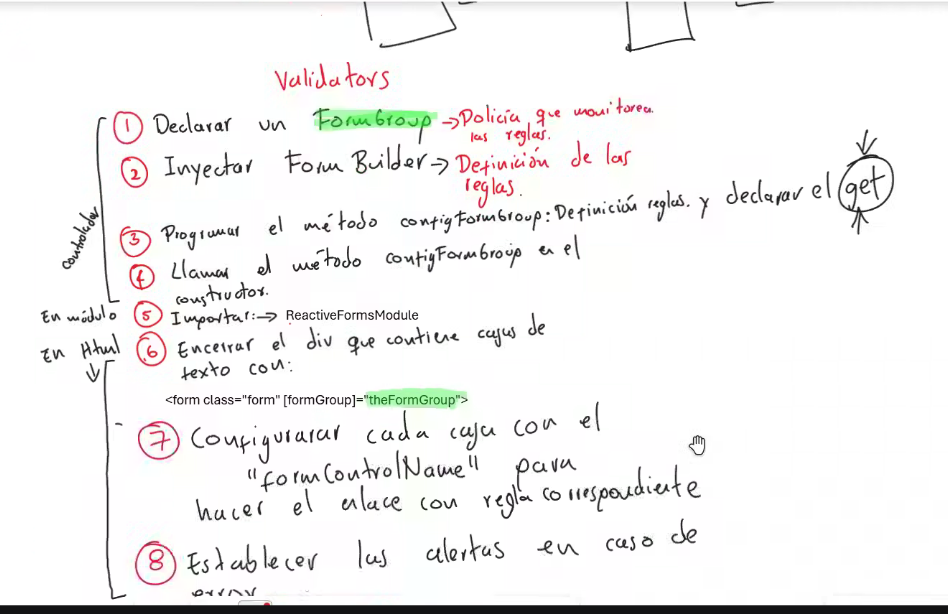 Validators
① Declarar un FormGroup → Policía que monitorea
las reglas.
② Inyectar Form Builder → Definición de las
reglas.
③ Programar el método configFormGroup: Definición reglas. y declarar el get
④ Llamar el método configFormGroup en el
constructor.
Controlador
En módulo ⑤ Importar: → ReactiveFormsModule
En Html ⑥ Encerrar el div que contiene cajas de
texto con:
<form class="form" [formGroup]="theFormGroup">
⑦ Configurarar cada caja con el
"formControlName" para
hacer el enlace con regla correspondiente
⑧ Establecer las alertas en caso de
error